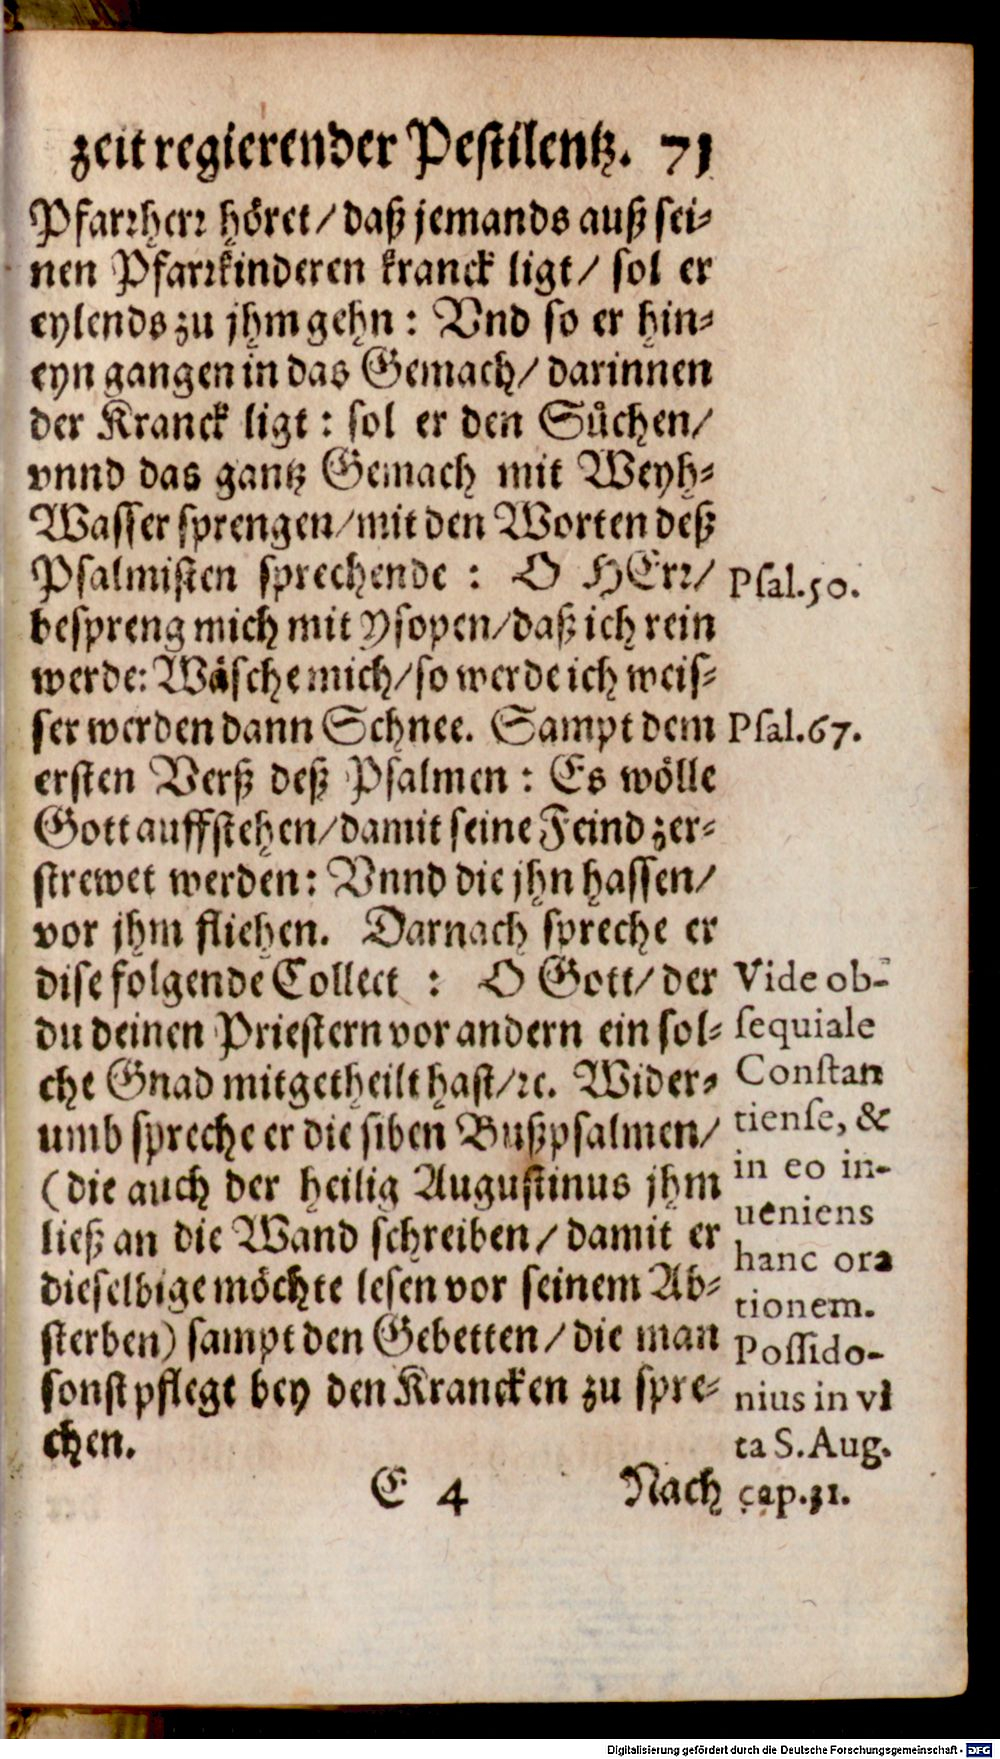 zeit regierender Pestilentz. 71
Pfarrherr höret/ daß jemands auß sei-
nen Pfarrkinderen kranck ligt/ sol er
eylends zu jhm gehn: Vnd so er hin-
eyn gangen in das Gemach/ darinnen
der Kranck ligt: sol er den Sůchen/
vnnd das gantz Gemach mit Weyh-
Wasser sprengen/ mit den Worten deß
Psalmisten sprechende: O HErr/
bespreng mich mit Ysopen/ daß ich rein
werde: Wäsche mich/ so werde ich weis-
ser werden dann Schnee. Sampt dem
ersten Verß deß Psalmen: Es wölle
Gott auffstehen/ damit seine Feind zer-
strewet werden: Vnnd die jhn hassen/
vor jhm fliehen. Darnach spreche er
dise folgende Collect: O Gott/ der
du deinen Priestern vor andern ein sol-
che Gnad mitgetheilt hast/ ꝛc. Wider-
umb spreche er die siben Bußpsalmen/
(die auch der heilig Augustinus jhm
ließ an die Wand schreiben/ damit er
dieselbige möchte lesen vor seinem Ab-
sterben) sampt den Gebetten/ die man
sonst pflegt bey den Krancken zu spre-
chen.
E 4 Nach
Psal.50.
Psal.67.
Vide ob-
sequiale
Constan
tiense, &
in eo in-
ueniens
hanc ora
tionem.
Possido-
nius in vi
ta S. Aug.
cap.31.
Digitalisierung gefördert durch die Deutsche Forschungsgemeinschaft - DFG